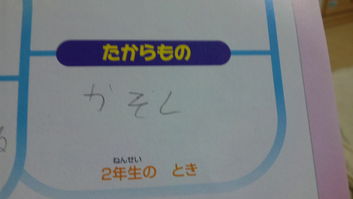 たからもの
かそし
ねんせい
2年生の とき